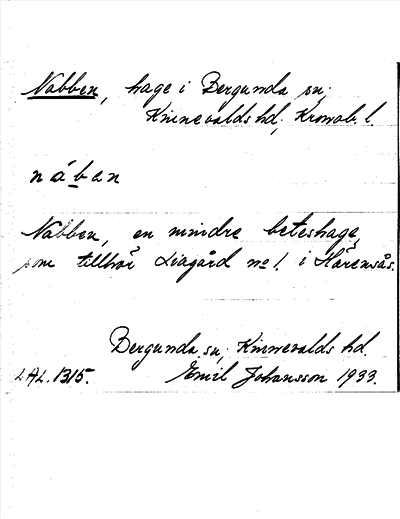 Nabben, hage i Bergunda sn;
Kinnevalds hd; Kronob. l.
nábɐn
Nabben, en mindre beteshage,
som tillhör Liagård no 1. i Härensås.
Bergunda sn; Kinnevalds hd.
LAL.1315. Emil Johansson 1933.